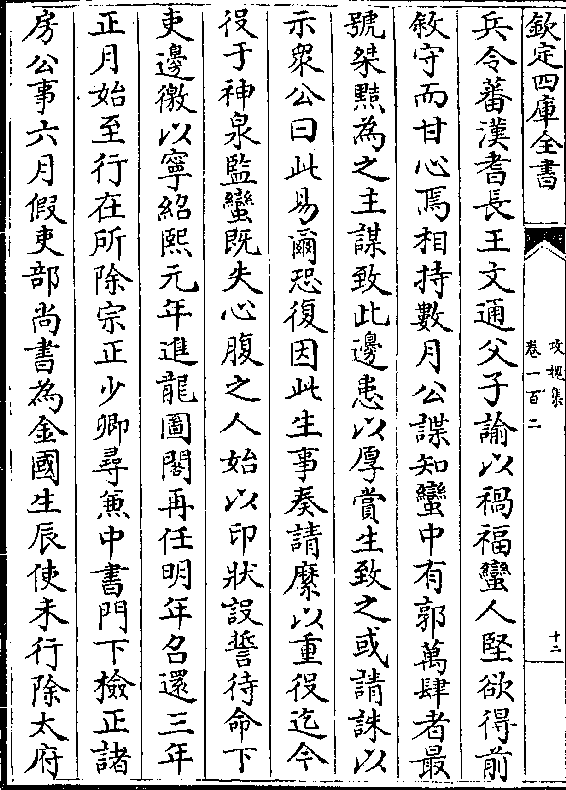 欽定四庫全書
攻媿集
卷一百二
十二
兵令蕃漢耆長王文通父子諭以禍福蠻人堅欲得前
敘守而甘心焉相持數月公諜知蠻中有郭萬肆者最
號桀黠為之主謀致此邊患以厚賞生致之或請誅以
示衆公曰此易爾恐復因此生事奏請縻以重役迄今
役于神泉監蠻既失心腹之人始以印狀設誓待命下
吏邊徼以寧紹熙元年進龍圖閣再任明年召還三年
正月始至行在所除宗正少卿尋兼中書門下檢正諸
房公事六月假吏部尚書為金國生辰使未行除太府